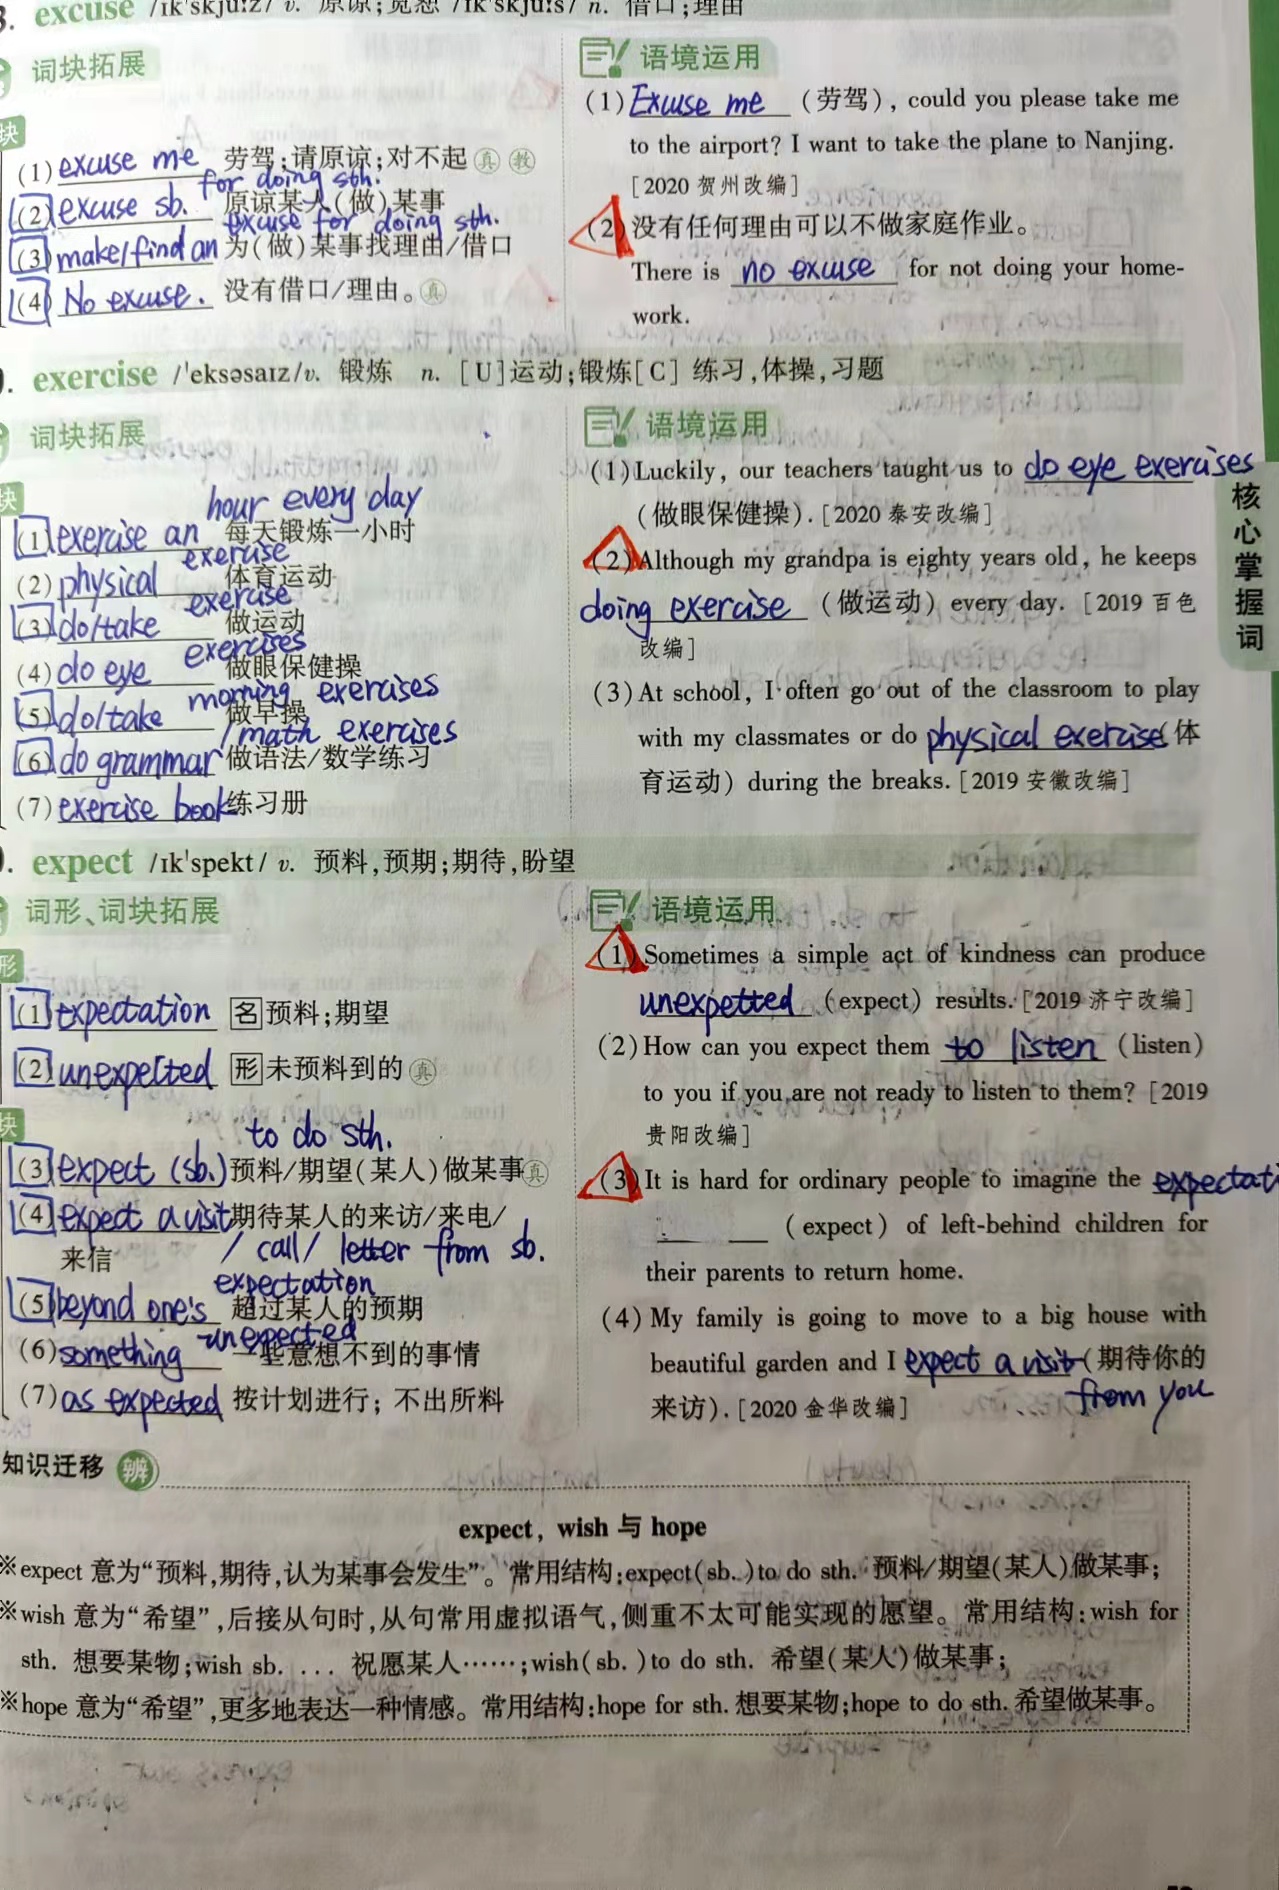 excuse /ɪk'skjuːz/ v. 原谅;宽恕 /ɪk'skjuːs/ n. 借口;理由
词块拓展
块
(1) excuse me 劳驾;请原谅;对不起 真 教
for doing sth.
(2) excuse sb. 原谅某人(做)某事
excuse for doing sth.
(3) make/find an 为(做)某事找理由/借口
(4) No excuse. 没有借口/理由。真
语境运用
(1) Excuse me (劳驾), could you please take me
to the airport? I want to take the plane to Nanjing.
[2020 贺州改编]
(2) 没有任何理由可以不做家庭作业。
There is no excuse for not doing your home-
work.
exercise /'eksəsaɪz/v. 锻炼 n. [U]运动;锻炼[C] 练习,体操,习题
词块拓展
块
hour every day
(1) exercise an 每天锻炼一小时
exercise
(2) physical 体育运动
exercise
(3) do/take 做运动
exercises
(4) do eye 做眼保健操
morning exercises
(5) do/take 做早操
/math exercises
(6) do grammar 做语法/数学练习
(7) exercise book 练习册
语境运用
(1) Luckily, our teachers taught us to do eye exercises
(做眼保健操). [2020 泰安改编]
(2) Although my grandpa is eighty years old, he keeps
doing exercise (做运动) every day. [2019 百色
改编]
(3) At school, I often go out of the classroom to play
with my classmates or do physical exercise (体
育运动) during the breaks. [2019 安徽改编]
核心掌握词
expect /ɪk'spekt/ v. 预料,预期;期待,盼望
词形、词块拓展
形
(1) expectation 名 预料;期望
(2) unexpected 形 未预料到的 真
块
to do sth.
(3) expect (sb.) 预料/期望(某人)做某事 真
(4) expect a visit 期待某人的来访/来电/
来信 / call/ letter from sb.
expectation
(5) beyond one's 超过某人的预期
unexpected
(6) something 一些意想不到的事情
(7) as expected 按计划进行; 不出所料
语境运用
(1) Sometimes a simple act of kindness can produce
unexpetted (expect) results. [2019 济宁改编]
(2) How can you expect them to listen (listen)
to you if you are not ready to listen to them? [2019
贵阳改编]
(3) It is hard for ordinary people to imagine the expectati
(expect) of left-behind children for
their parents to return home.
(4) My family is going to move to a big house with
beautiful garden and I expect a visit (期待你的
from you
来访). [2020 金华改编]
知识迁移 辨
expect, wish 与 hope
※expect 意为“预料,期待,认为某事会发生”。常用结构:expect(sb.)to do sth. 预料/期望(某人)做某事;
※wish 意为“希望”,后接从句时,从句常用虚拟语气,侧重不太可能实现的愿望。常用结构:wish for
sth. 想要某物;wish sb. ... 祝愿某人……;wish(sb.)to do sth. 希望(某人)做某事;
※hope 意为“希望”,更多地表达一种情感。常用结构:hope for sth. 想要某物;hope to do sth. 希望做某事。